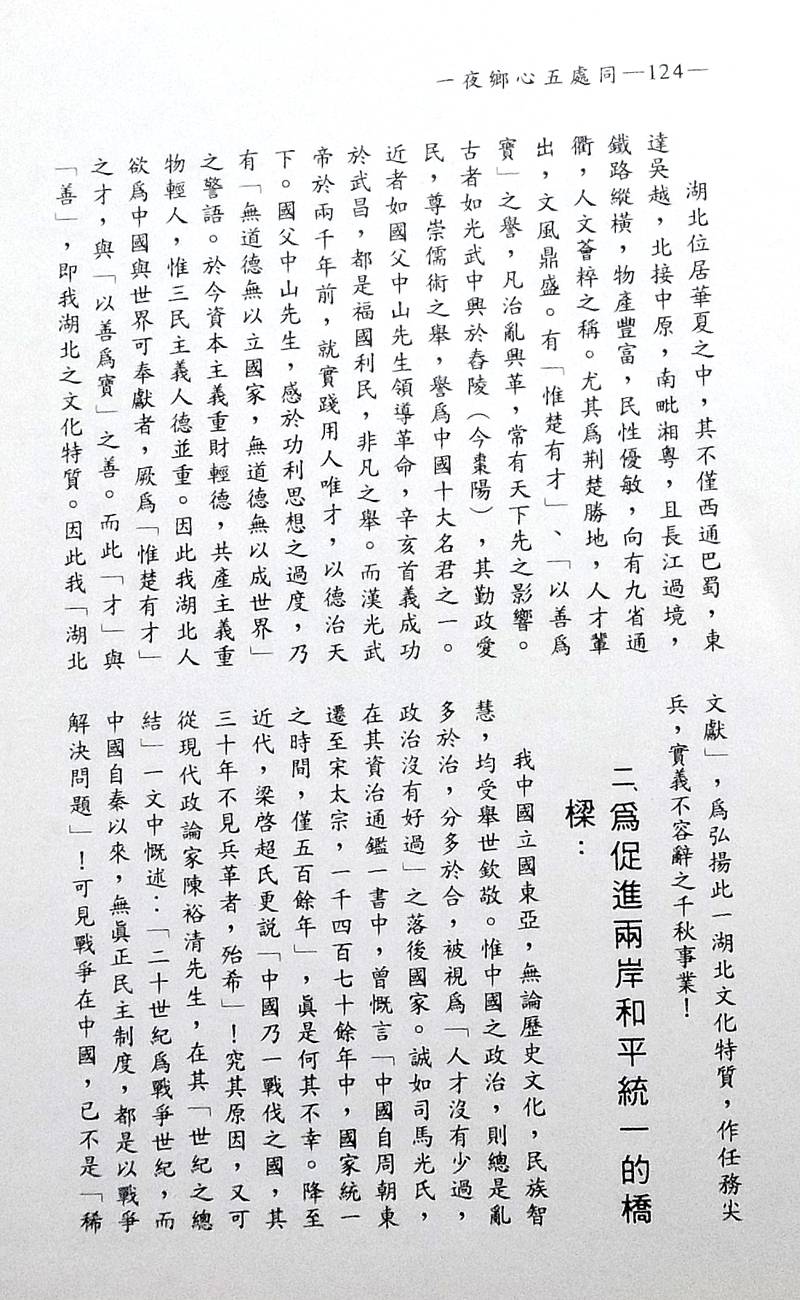 一夜鄉心五處同—124—
湖北位居華夏之中，其不僅西通巴蜀，東
達吳越，北接中原，南毗湘粵，且長江過境，
鐵路縱橫，物產豐富，民性優敏，向有九省通
衢，人文薈粹之稱。尤其爲荆楚勝地，人才輩
出，文風鼎盛。有「惟楚有才」、「以善爲
寶」之譽，凡治亂興革，常有天下先之影響。
古者如光武中興於舂陵（今棗陽），其勤政愛
民，尊崇儒術之舉，譽爲中國十大名君之一。
近者如國父中山先生領導革命，辛亥首義成功
於武昌，都是福國利民，非凡之舉。而漢光武
帝於兩千年前，就實踐用人唯才，以德治天
下。國父中山先生，感於功利思想之過度，乃
有「無道德無以立國家，無道德無以成世界」
之警語。於今資本主義重財輕德，共產主義重
物輕人，惟三民主義人德並重。因此我湖北人
欲爲中國與世界可奉獻者，厥爲「惟楚有才」
之才，與「以善爲寶」之善。而此「才」與
「善」，即我湖北之文化特質。因此我「湖北
文獻」，爲弘揚此一湖北文化特質，作任務尖
兵，實義不容辭之千秋事業！
二、爲促進兩岸和平統一的橋
樑：
我中國立國東亞，無論歷史文化，民族智
慧，均受舉世欽敬。惟中國之政治，則總是亂
多於治，分多於合，被視爲「人才沒有少過，
政治沒有好過」之落後國家。誠如司馬光氏，
在其資治通鑑一書中，曾慨言「中國自周朝東
遷至宋太宗，一千四百七十餘年中，國家統一
之時間，僅五百餘年」，眞是何其不幸。降至
近代，梁啓超氏更説「中國乃一戰伐之國，其
三十年不見兵革者，殆希」！究其原因，又可
從現代政論家陳裕清先生，在其「世紀之總
結」一文中慨述：「二十世紀爲戰爭世紀，而
中國自秦以來，無眞正民主制度，都是以戰爭
解決問題」！可見戰爭在中國，已不是「稀